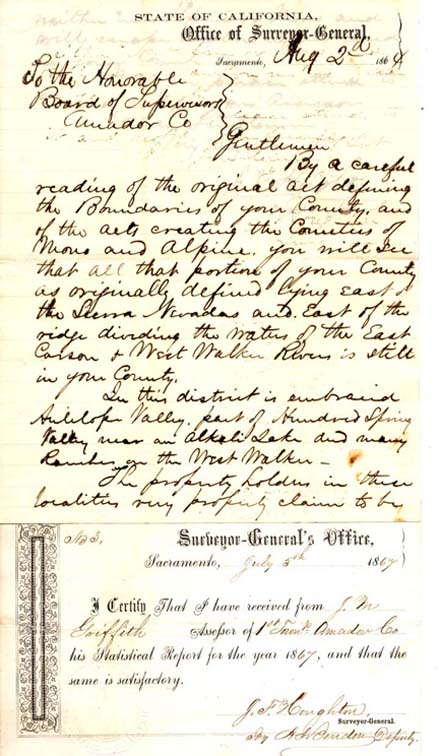 STATE OF CALIFORNIA,
Office of Surveyor-General,
Sacramento, Aug 2d 1864
To the Honorable
Board of Supervisors
Amador Co
Gentlemen
By a careful
reading of the original act defining
the Boundaries of your County, and
of the acts creating the Counties of
Mono and Alpine, you will see
that all that portion of your County
as originally defined lying east of
the Sierra Nevadas and East of the
ridge dividing the waters of the East
Carson & West Walker Rivers is still
in your County.
In this district is embraced
Antelope Valley, part of Hundred Spring
Valley near an Alkali Lake and many
Ranches on the West Walker –
The property holders in these
localities very properly claim to be
No 3.
Surveyor-General's Office,
Sacramento, July 5th 1867
I Certify That I have received from J. M
Griffith Assessor of 1st Amador Co
his Statistical Report for the year 1867, and that the
same is satisfactory.
J. F. Houghton,
Surveyor-General.
By Deputy